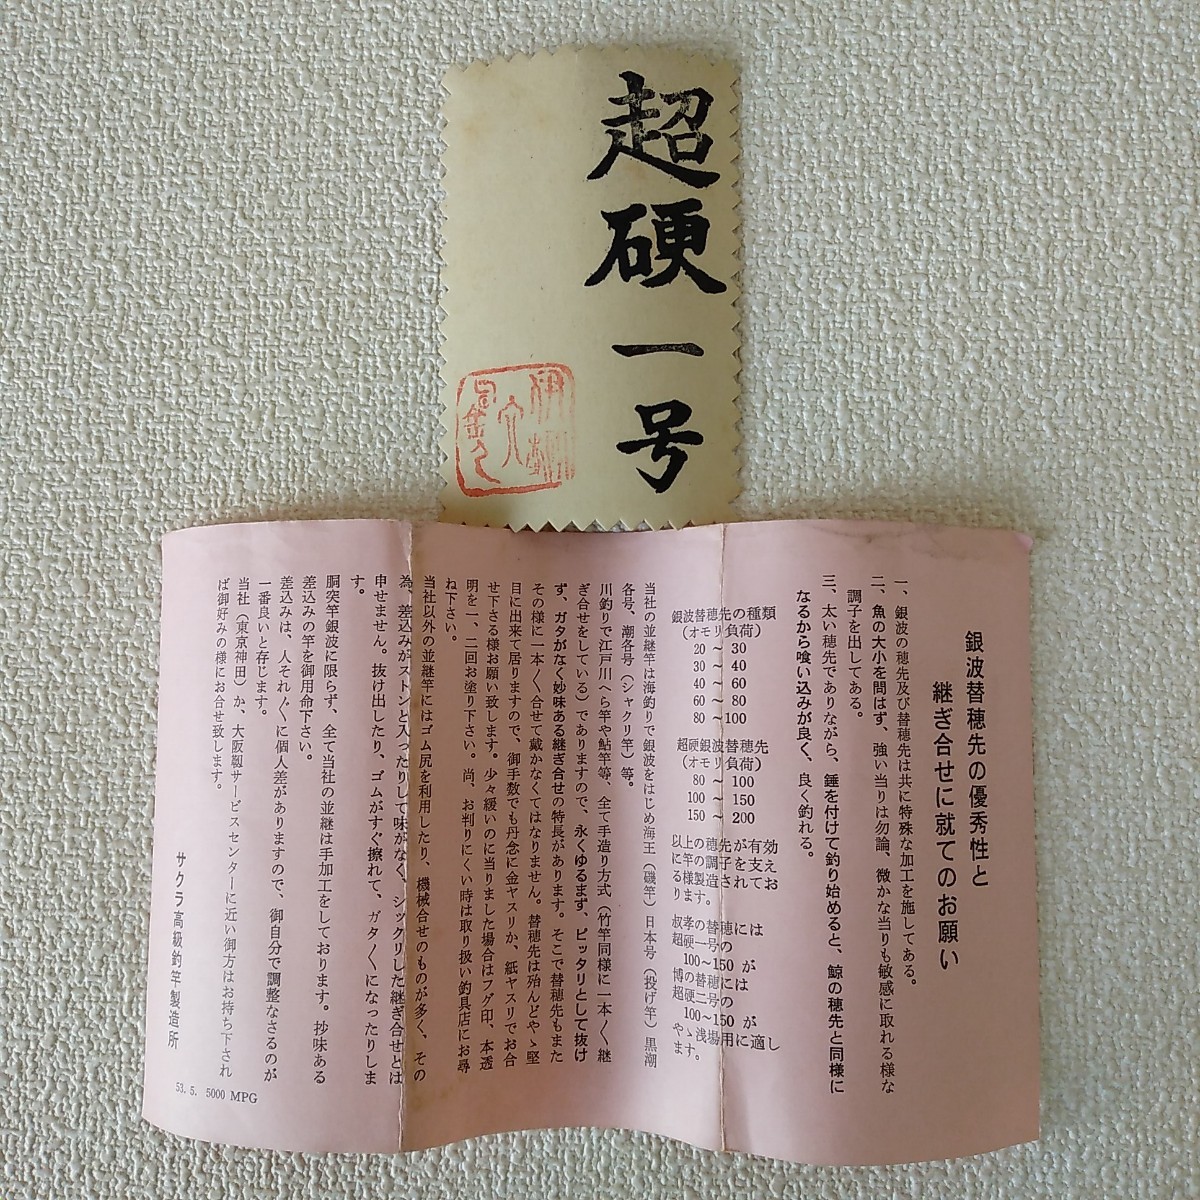 超硬一号
銀波替穂先の優秀性と
継ぎ合せに就てのお願い
一、銀波の穂先及び替穂先は共に特殊な加工を施してある。
二、魚の大小を問はず、強い当りは勿論、微かな当りも敏感に取れる様な
調子を出してある。
三、太い穂先でありながら、錘を付けて釣り始めると、鯨の穂先と同様に
なるから喰い込みが良く、良く釣れる。
銀波替穂先の種類
(オモリ負荷)
20 ~ 30
30 ~ 40
40 ~ 60
60 ~ 80
80 ~100
超硬銀波替穂先
(オモリ負荷)
80 ~ 100
100 ~ 150
150 ~ 200
以上の穂先が有効
に竿の調子を支え
る様製造されてお
ります。
叔孝の替穂には
超硬一号の
100~150 が
博の替穂には
超硬二号の
100~150 が
やゝ浅場用に適し
ます。
当社の並継竿は海釣りで銀波をはじめ海王（磯竿）日本号（投げ竿）黒潮
各号、潮各号（シャクリ竿）等。
川釣りで江戸川へら竿や鮎竿等、全て手造り方式（竹竿同様に一本〱継
ぎ合せをしている）でありますので、永くゆるまず、ピッタリとして抜け
ず、ガタがなく妙味ある継ぎ合せの特長があります。そこで替穂先もまた
その様に一本〱合せて戴かなくてはなりません。替穂先は殆んどやゝ堅
目に出来て居りますので、御手数でも丹念に金ヤスリか、紙ヤスリでお合
せ下さる様お願い致します。少々緩いのに当りました場合はフグ印、本透
明を一、二回お塗り下さい。尚、お判りにくい時は取り扱い釣具店にお尋
ね下さい。
当社以外の並継竿にはゴム尻を利用したり、機械合せのものが多く、その
為、差込みがストンと入ったりして味がなく、シックリした継ぎ合せとは
申せません。抜け出したり、ゴムがすぐ擦れて、ガタ〱になったりしま
す。
胴突竿銀波に限らず、全て当社の並継は手加工をしております。抄味ある
差込みの竿を御用命下さい。
差込みは、人それ〲に個人差がありますので、御自分で調整なさるのが
一番良いと存じます。
当社（東京神田）か、大阪靱サービスセンターに近い御方はお持ち下され
ば御好みの様にお合せ致します。
サクラ高級釣竿製造所
53. 5. 5000 MPG